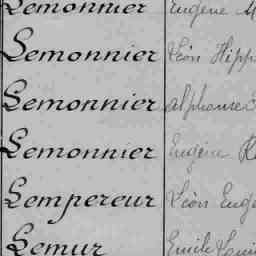 Lemonnier Eugène M
Lemonnier Léon Hipp
Lemonnier Alphonse
Lemonnier Eugène R
Lempereur Léon Eug
Lemur Emile Loui